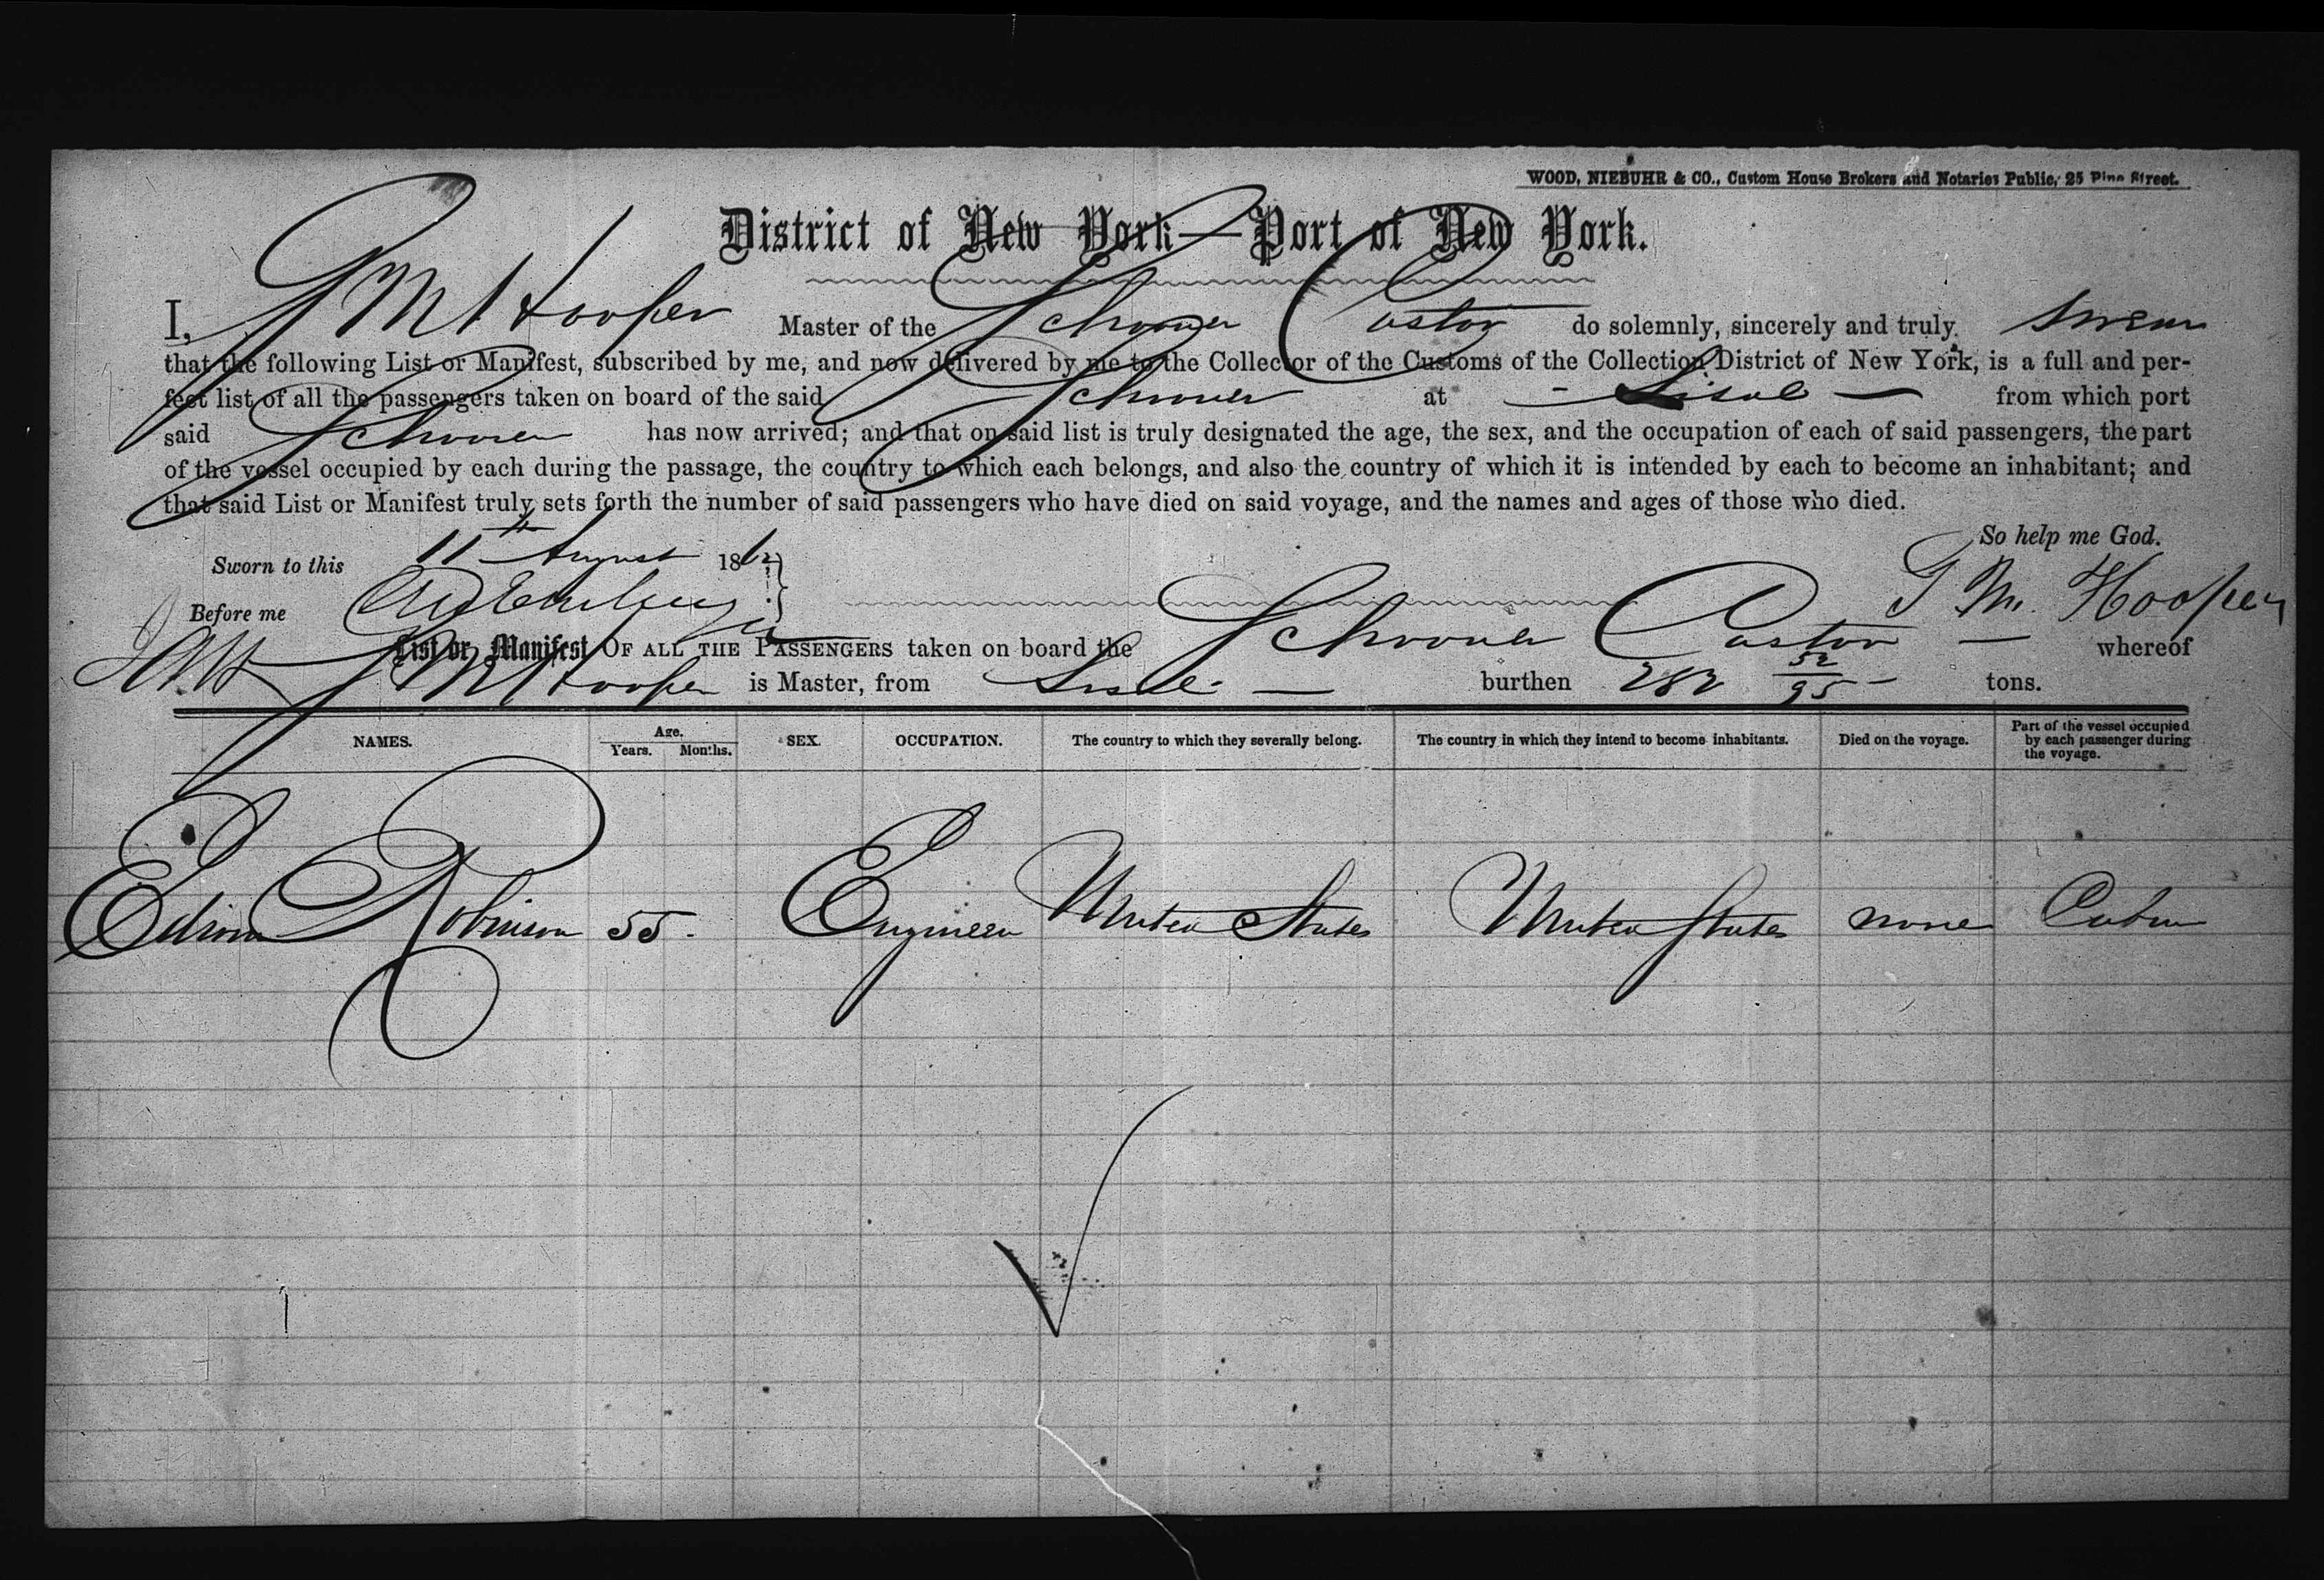 WOOD, NIEBUHR & CO., Custom House Brokers and Notaries Public, 25 Pine Street.
District of New York—Port of New York.
I, G M Hooper Master of the Schooner Castor do solemnly, sincerely and truly swear
that the following List or Manifest, subscribed by me, and now delivered by me to the Collector of the Customs of the Collection District of New York, is a full and per-
fect list of all the passengers taken on board of the said Schooner at - Sisal — from which port
said Schooner has now arrived; and that on said list is truly designated the age, the sex, and the occupation of each of said passengers, the part
of the vessel occupied by each during the passage, the country to which each belongs, and also the country of which it is intended by each to become an inhabitant; and
that said List or Manifest truly sets forth the number of said passengers who have died on said voyage, and the names and ages of those who died.
So help me God.
Sworn to this 11th August 186
G M. Hooper
Before me
List or Manifest OF ALL THE PASSENGERS taken on board the Schooner Castor — whereof
G M Hooper is Master, from Sisal — burthen 282 52/95 - tons.
NAMES. Age. Years. Months. SEX. OCCUPATION. The country to which they severally belong. The country in which they intend to become inhabitants. Died on the voyage. Part of the vessel occupied by each passenger during the voyage.
Edwin Robinson 55. Engineer United States United States none Cabin